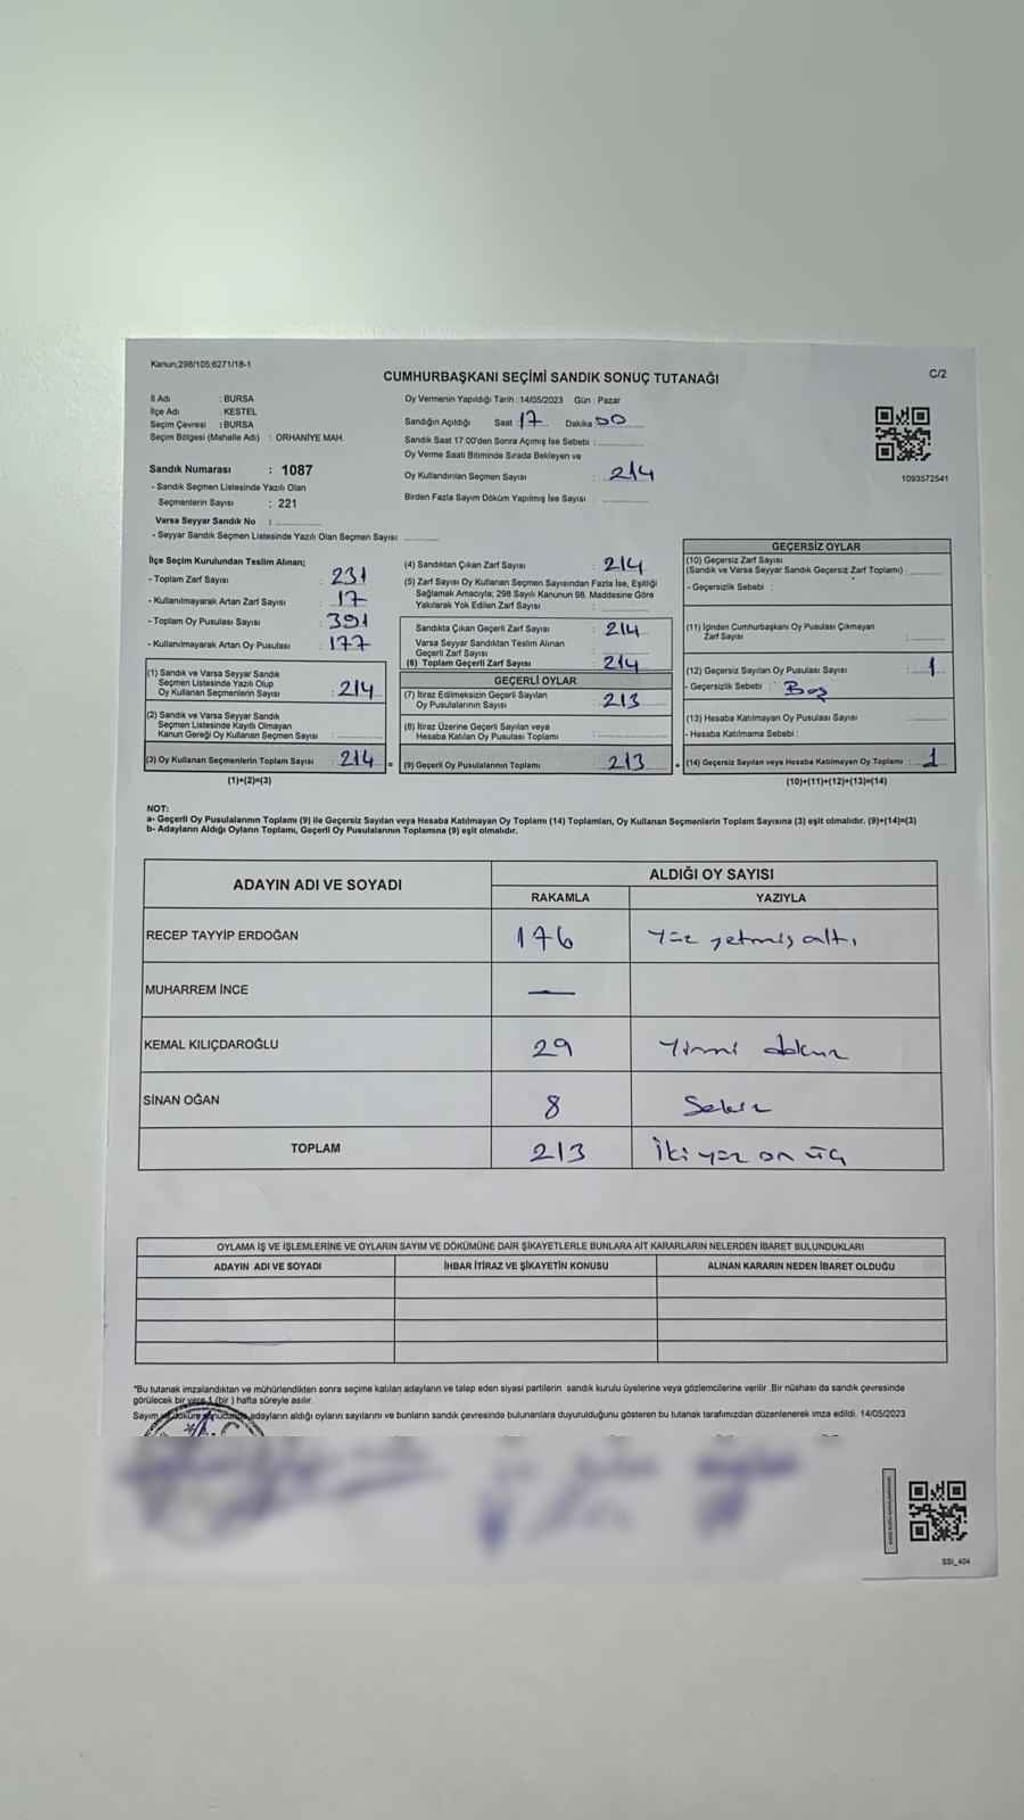 Kanun:298/105;6271/18-1
C/2
CUMHURBAŞKANI SEÇİMİ SANDIK SONUÇ TUTANAĞI
İl Adı : BURSA
İlçe Adı : KESTEL
Seçim Çevresi : BURSA
Seçim Bölgesi (Mahalle Adı) : ORHANİYE MAH.
Sandık Numarası : 1087
- Sandık Seçmen Listesinde Yazılı Olan
Seçmenlerin Sayısı : 221
Varsa Seyyar Sandık No :
- Seyyar Sandık Seçmen Listesinde Yazılı Olan Seçmen Sayısı
Oy Vermenin Yapıldığı Tarih : 14/05/2023 Gün : Pazar
Sandığın Açıldığı Saat : 17 Dakika : 00
Sandık Saat 17.00'den Sonra Açımış İse Sebebi :
Oy Verme Saati Bitiminde Sırada Bekleyen ve
Oy Kullandırılan Seçmen Sayısı : 214
Birden Fazla Sayım Döküm Yapılmış İse Sayısı
1093572541
İlçe Seçim Kurulundan Teslim Alınan;
- Toplam Zarf Sayısı : 231
- Kullanılmayarak Artan Zarf Sayısı : 17
- Toplam Oy Pusulası Sayısı : 391
- Kullanılmayarak Artan Oy Pusulası : 177
(1) Sandık ve Varsa Seyyar Sandık
Seçmen Listesinde Yazılı Olup
Oy Kullanan Seçmenlerin Sayısı : 214
(2) Sandık ve Varsa Seyyar Sandık
Seçmen Listesinde Kayıtlı Olmayan
Kanun Gereği Oy Kullanan Seçmen Sayısı
(3) Oy Kullanan Seçmenlerin Toplam Sayısı : 214 =
(1)+(2)=(3)
(4) Sandıktan Çıkan Zarf Sayısı : 214
(5) Zarf Sayısı Oy Kullanan Seçmen Sayısından Fazla İse, Eşitliği
Sağlamak Amacıyla; 298 Sayılı Kanunun 98. Maddesine Göre
Yakılarak Yok Edilen Zarf Sayısı :
Sandıkta Çıkan Geçerli Zarf Sayısı : 214
Varsa Seyyar Sandıktan Teslim Alınan
Geçerli Zarf Sayısı
(6) Toplam Geçerli Zarf Sayısı : 214
GEÇERLİ OYLAR
(7) İtiraz Edilmeksizin Geçerli Sayılan
Oy Pusulalarının Sayısı : 213
(8) İtiraz Üzerine Geçerli Sayılan veya
Hesaba Katılan Oy Pusulası Toplamı :
(9) Geçerli Oy Pusulalarının Toplamı : 213 +
GEÇERSİZ OYLAR
(10) Geçersiz Zarf Sayısı
(Sandık ve Varsa Seyyar Sandık Geçersiz Zarf Toplamı) :
- Geçersizlik Sebebi :
(11) İçinden Cumhurbaşkanı Oy Pusulası Çıkmayan
Zarf Sayısı :
(12) Geçersiz Sayılan Oy Pusulası Sayısı : 1
- Geçersizlik Sebebi : Boş
(13) Hesaba Katılmayan Oy Pusulası Sayısı :
- Hesaba Katılmama Sebebi :
(14) Geçersiz Sayılan veya Hesaba Katılmayan Oy Toplamı : 1
(10)+(11)+(12)+(13)=(14)
NOT:
a- Geçerli Oy Pusulalarının Toplamı (9) ile Geçersiz Sayılan veya Hesaba Katılmayan Oy Toplamı (14) Toplamları, Oy Kullanan Seçmenlerin Toplam Sayısına (3) eşit olmalıdır. (9)+(14)=(3)
b- Adayların Aldığı Oyların Toplamı, Geçerli Oy Pusulasının Toplamına (9) eşit olmalıdır.
ADAYIN ADI VE SOYADI
ALDIĞI OY SAYISI
RAKAMLA YAZIYLA
RECEP TAYYİP ERDOĞAN 176 Yüz yetmiş altı
MUHARREM İNCE —
KEMAL KILIÇDAROĞLU 29 Yirmi dokuz
SİNAN OĞAN 8 Sekiz
TOPLAM 213 İki yüz on üç
OYLAMA İŞ VE İŞLEMLERİNE VE OYLARIN SAYIM VE DÖKÜMÜNE DAİR ŞİKAYETLERLE BUNLARA AİT KARARLARIN NELERDEN İBARET BULUNDUKLARI
ADAYIN ADI VE SOYADI İHBAR İTİRAZ VE ŞİKAYETİN KONUSU ALINAN KARARIN NEDEN İBARET OLDUĞU
*Bu tutanak imzalandıktan ve mühürlendikten sonra seçime katılan adayların ve talep eden siyasi partilerin sandık kurulu üyelerine veya gözlemcilerine verilir. Bir nüshası da sandık çevresinde
görülecek bir yere 1 (bir ) hafta süreyle asılır.
Sayım adayların aldığı oyların sayılarını ve bunların sandık çevresinde bulunanlara duyurulduğunu gösteren bu tutanak tarafımızdan düzenlenerek imza edildi. 14/05/2023
SSI_404